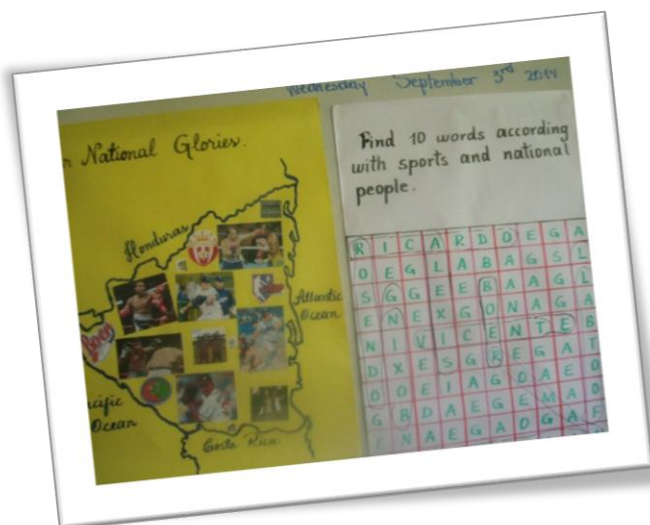 Wednesday September 3rd 2014
National Glories.
Honduras
Atlantic
Ocean
Boer
cific
Ocean
Costa Rica
Find 10 words according
with sports and national
people.
R I C A R D O E G A
O E G L A B A G S L
S G G E E B A A G L
E N E X G O N A G A
N I V I C E N T E B
D X E S G R E G A T
O O E I A G O A E O
G B D A E G E M A O
E N A E G A O G A F